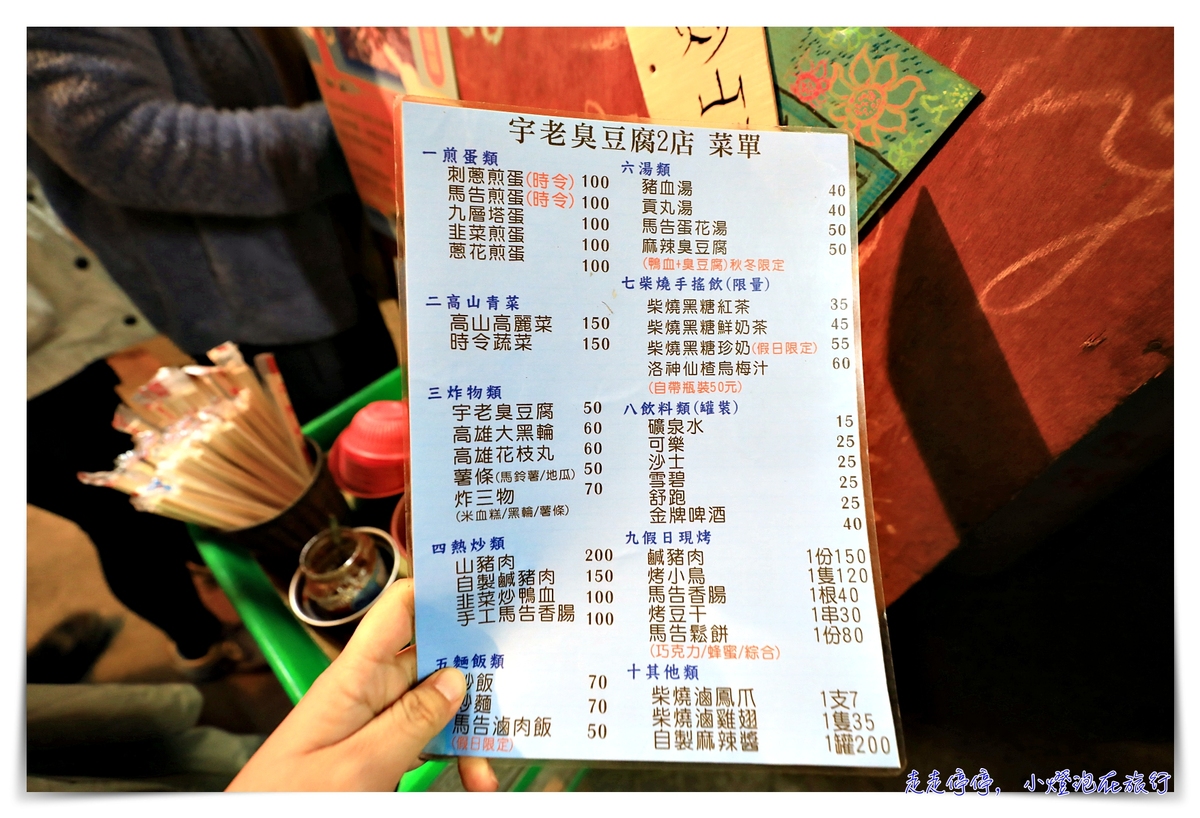 炒山
宇老臭豆腐2店 菜單
一煎蛋類
刺蔥煎蛋(時令) 100
馬告煎蛋(時令) 100
九層塔蛋 100
韭菜煎蛋 100
蔥花煎蛋 100
二高山青菜
高山高麗菜 150
時令蔬菜 150
三炸物類
宇老臭豆腐 50
高雄大黑輪 60
高雄花枝丸 60
薯條(馬鈴薯/地瓜) 50
炸三物 70
(米血糕/黑輪/薯條)
四熱炒類
山豬肉 200
自製鹹豬肉 150
韭菜炒鴨血 100
手工馬告香腸 100
五麵飯類
炒飯 70
炒麵 70
馬告滷肉飯 50
(假日限定)
六湯類
豬血湯 40
貢丸湯 40
馬告蛋花湯 50
麻辣臭豆腐 50
(鴨血+臭豆腐)秋冬限定
七柴燒手搖飲(限量)
柴燒黑糖紅茶 35
柴燒黑糖鮮奶茶 45
柴燒黑糖珍奶(假日限定) 55
洛神仙楂烏梅汁 60
(自帶瓶裝50元)
八飲料類(罐裝)
礦泉水 15
可樂 25
沙士 25
雪碧 25
舒跑 25
金牌啤酒 40
九假日現烤
鹹豬肉 1份150
烤小鳥 1隻120
馬告香腸 1根40
烤豆干 1串30
馬告鬆餅 1份80
(巧克力/蜂蜜/綜合)
十其他類
柴燒滷鳳爪 1支7
柴燒滷雞翅 1隻35
自製麻辣醬 1罐200
走走停停，小燈泡在旅行